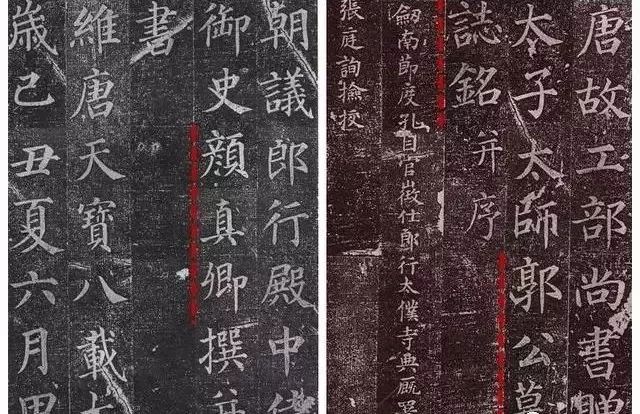 唐故工部尚書贈
太子太師郭公墓
誌銘并序
劒南節度孔目官徵仕郎行太僕寺典厩署
張庭詢撿挍
朝議郎行殿中侍
御史顏真卿撰并
書
維唐天寶八載太
歲己丑夏六月甲